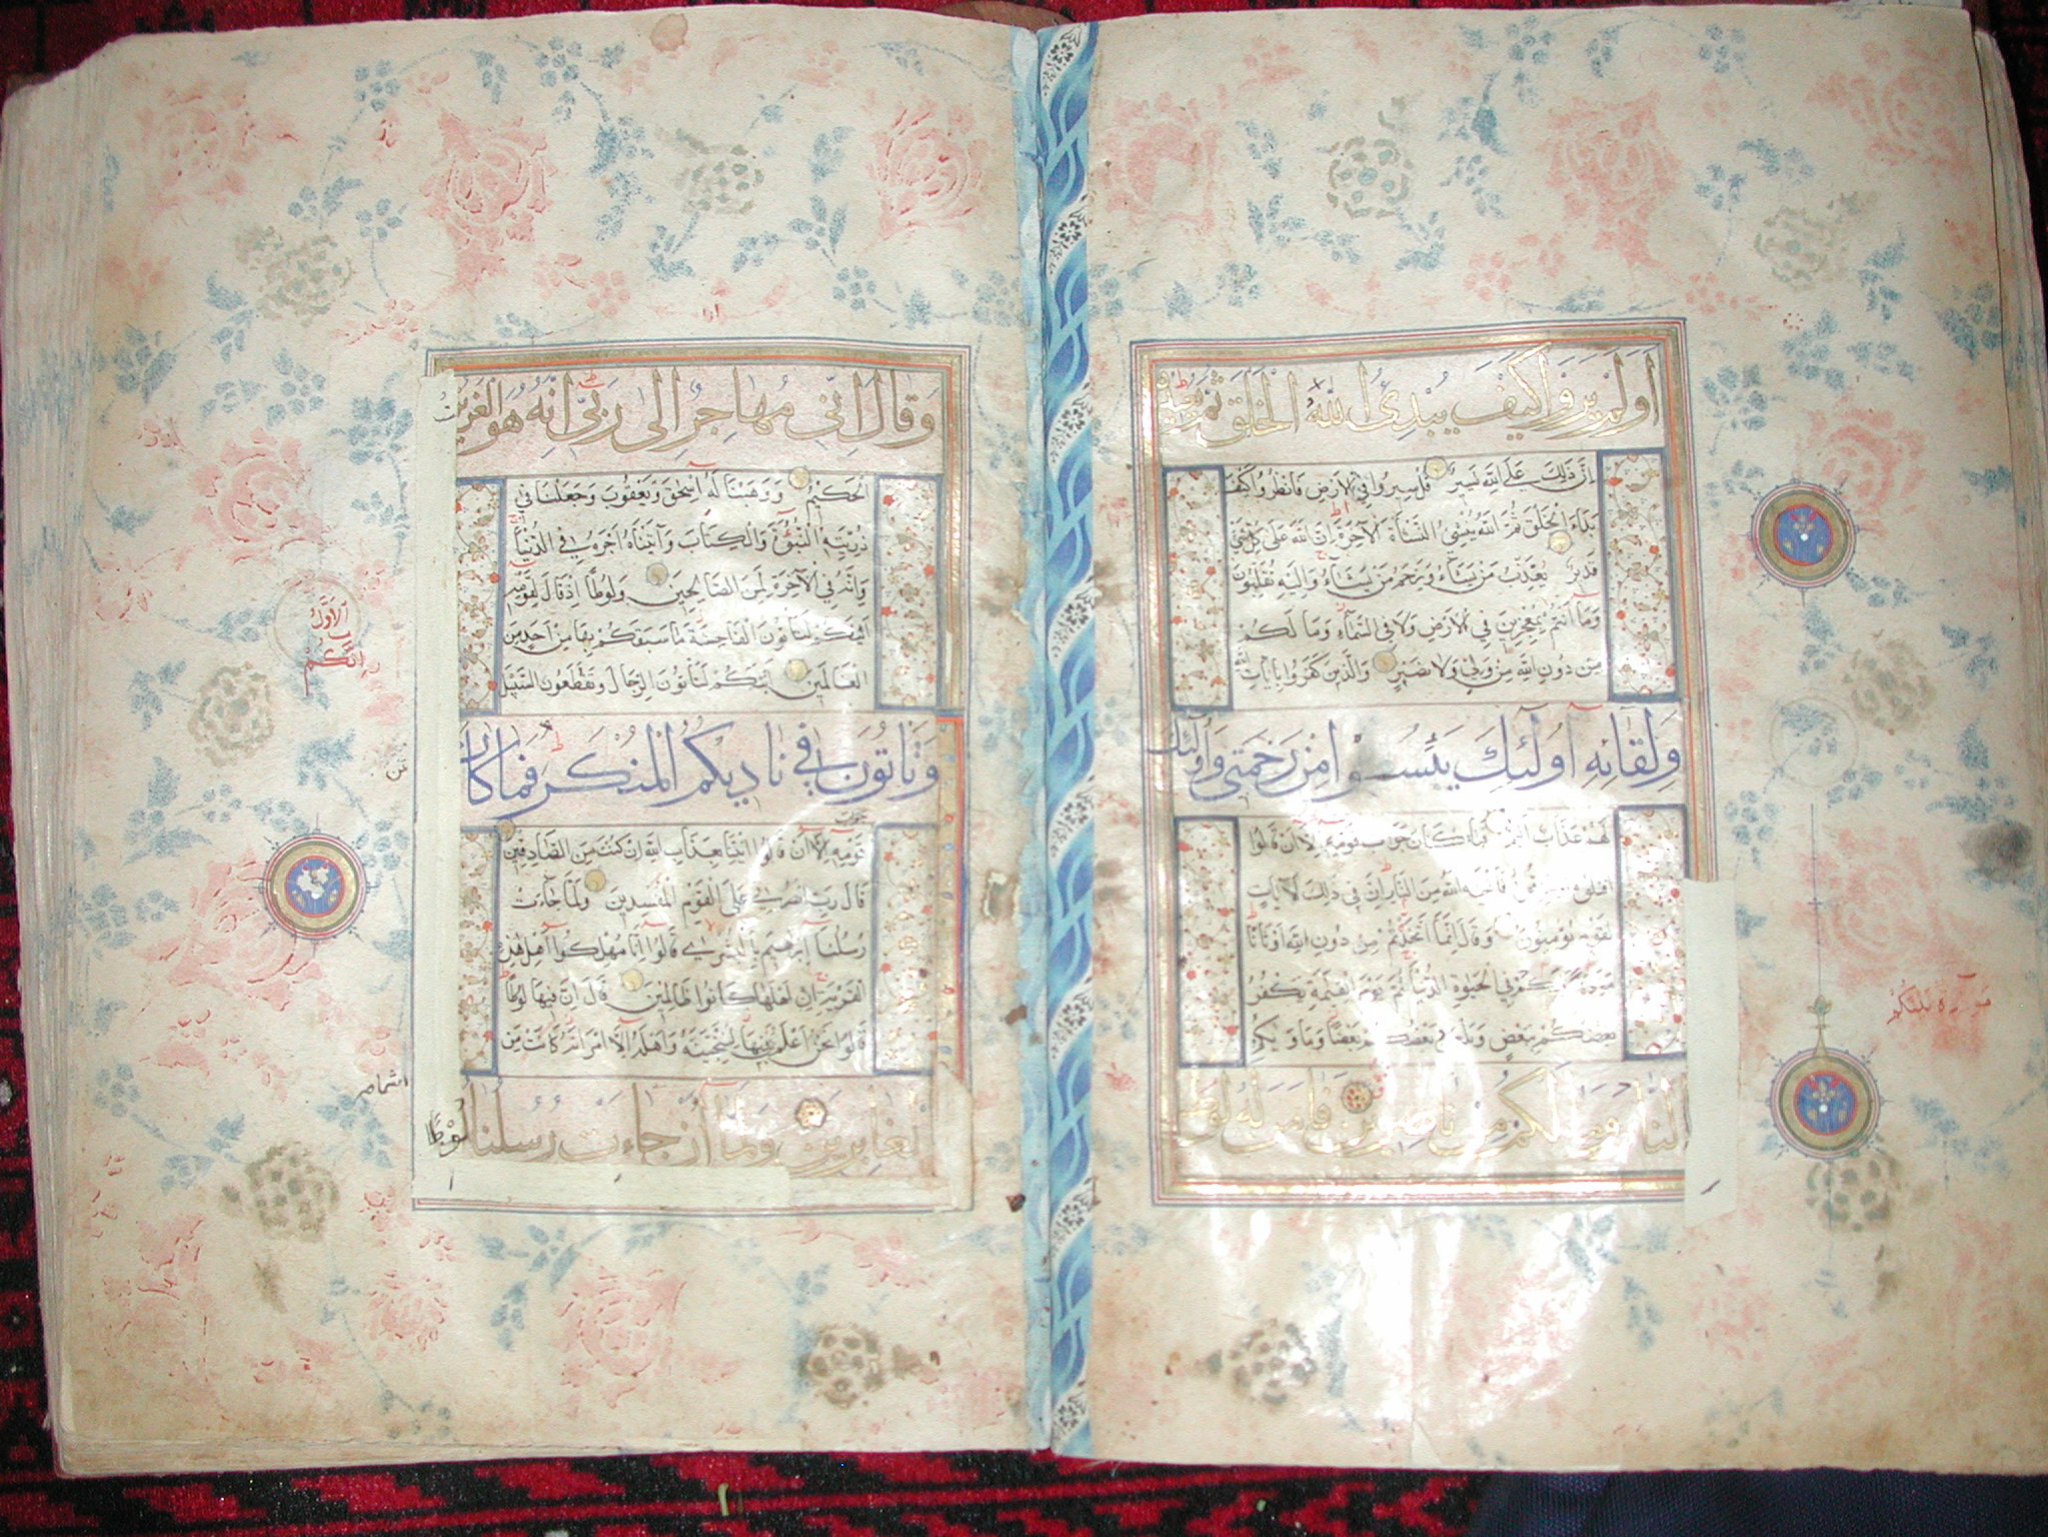 اولم يروا كيف يبدئ الله الخلق ثم يعيده
ان ذلك على الله يسير قل سيروا في الارض فانظروا كيف
بدا الخلق ثم الله ينشئ النشاة الآخرة ان الله على كل شئ
قدير يعذب من يشاء ويرحم من يشاء واليه تقلبون
وما انتم بمعجزين في الارض ولا في السماء وما لكم
من دون الله من ولي ولا نصير والذين كفروا بايات الله
ولقائه اولئك يئسوا من رحمتي واولئك
لهم عذاب اليم فما كان جواب قومه الا ان قالوا
اقتلوه فانجيه الله من النار ان في ذلك لآيات
لقوم يؤمنون وقال انما اتخذتم من دون الله اوثانا
مودة بينكم في الحيوة الدنيا ثم يوم القيمة يكفر
بعضكم ببعض ويلعن بعضكم بعضا وماويكم
النار وما لكم من ناصرين فامن له لوط
وقال اني مهاجر الى ربي انه هو العزيز
الحكيم ووهبنا له اسحق ويعقوب وجعلنا في
ذريته النبوة والكتاب وآتيناه اجره في الدنيا
وانه في الآخرة لمن الصالحين ولوطا اذ قال لقومه
ائنكم لتاتون الفاحشة ما سبقكم بها من احد من
العالمين ائنكم لتاتون الرجال وتقطعون السبيل
وتاتون في ناديكم المنكر فما كان
جواب
قومه الا ان قالوا ائتنا بعذاب الله ان كنت من الصادقين
قال رب انصرني على القوم المفسدين ولما جاءت
رسلنا ابرهيم بالبشرى قالوا انا مهلكوا اهل هذه
القرية ان اهلها كانوا ظالمين قال ان فيها لوطا
قالوا نحن اعلم بمن فيها لننجينه واهله الا امراته كانت من
الغابرين ولما ان جاءت رسلنا لوطا
الاول
ائنكم
اشمام